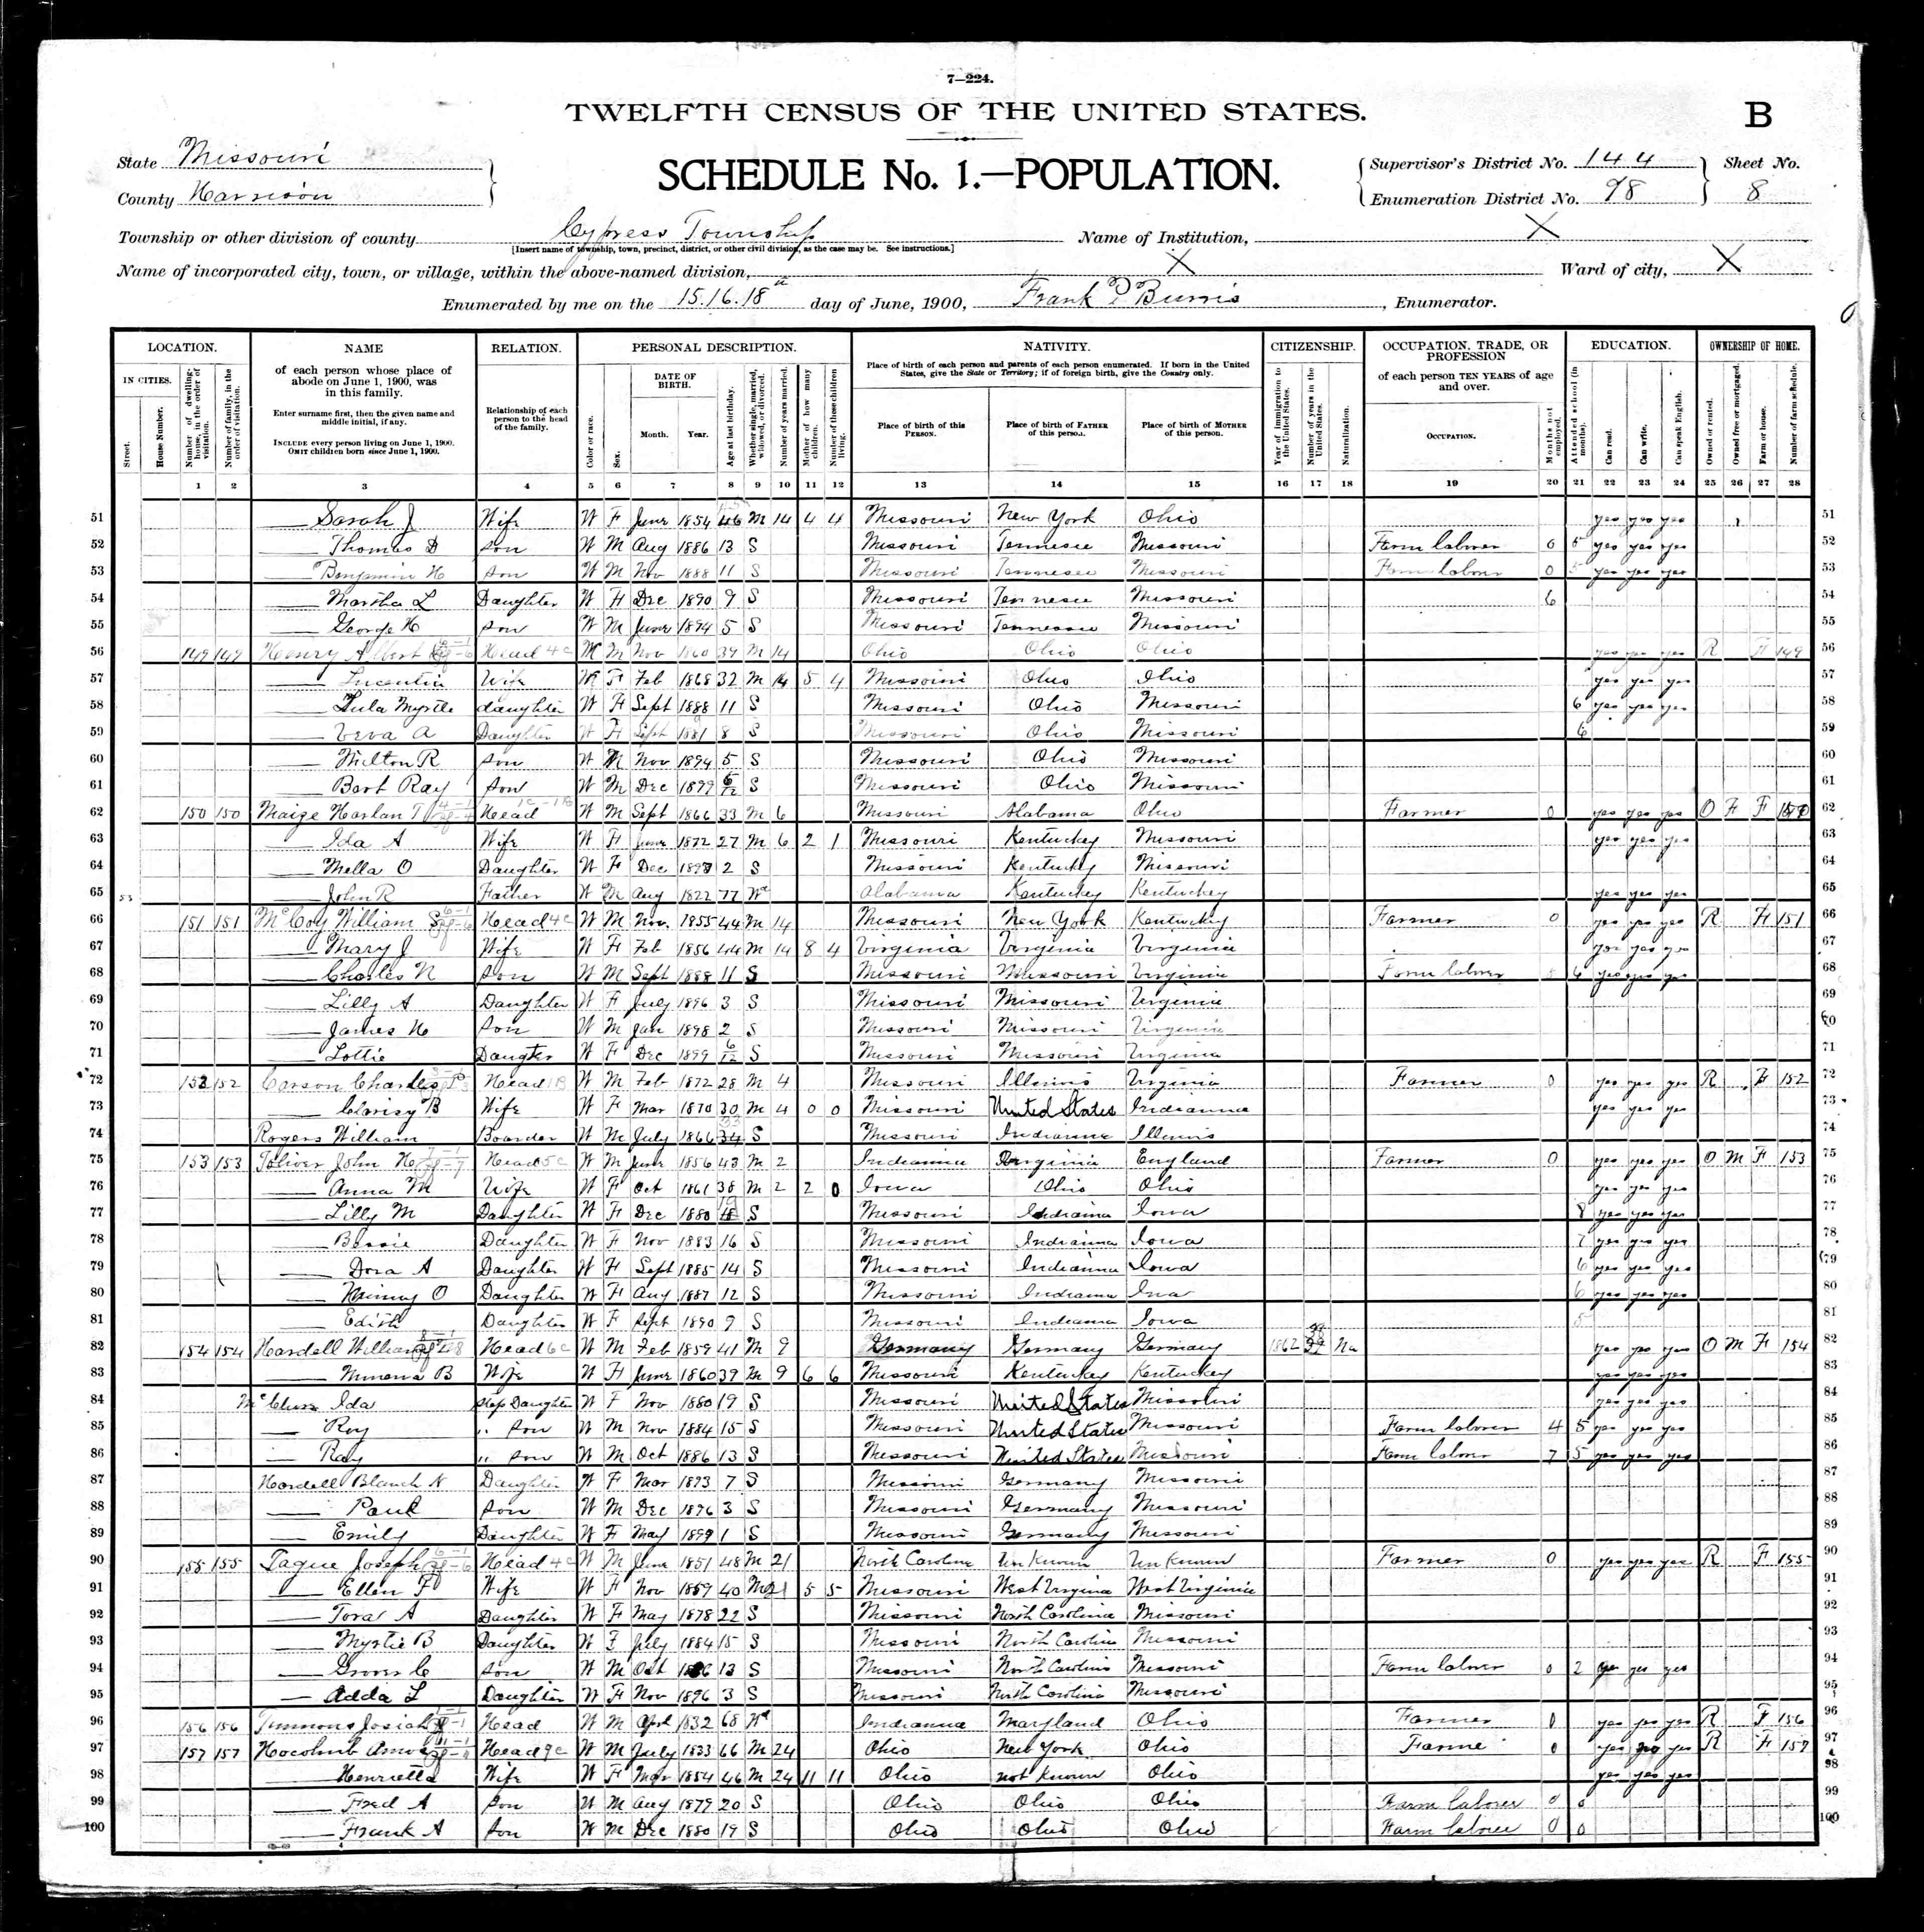 7—224.
TWELFTH CENSUS OF THE UNITED STATES.
B
State Missouri
County Harrison
SCHEDULE No. 1.—POPULATION.
Supervisor's District No. 144
Enumeration District No. 98
Sheet No.
8
Township or other division of county Cypress Township
[Insert name of township, town, precinct, district, or other civil division, as the case may be. See instructions.]
Name of Institution, X
Name of incorporated city, town, or village, within the above-named division, X
Ward of city, X
Enumerated by me on the 15.16.18 day of June, 1900, Frank P Burris, Enumerator.
LOCATION. NAME RELATION. PERSONAL DESCRIPTION. NATIVITY. CITIZENSHIP. OCCUPATION, TRADE, OR PROFESSION EDUCATION. OWNERSHIP OF HOME.
IN CITIES.
Street.
House Number.
Number of dwelling-house, in the order of visitation.
Number of family, in the order of visitation.
of each person whose place of abode on June 1, 1900, was in this family.
Enter surname first, then the given name and middle initial, if any.
INCLUDE every person living on June 1, 1900.
OMIT children born since June 1, 1900.
Relationship of each person to the head of the family.
Color or race.
Sex.
DATE OF BIRTH.
Month. Year.
Age at last birthday.
Whether single, married, widowed, or divorced.
Number of years married.
Mother of how many children.
Number of these children living.
Place of birth of each person and parents of each person enumerated. If born in the United States, give the State or Territory; if of foreign birth, give the Country only.
Place of birth of this PERSON.
Place of birth of FATHER of this person.
Place of birth of MOTHER of this person.
Year of immigration to the United States.
Number of years in the United States.
Naturalization.
of each person TEN YEARS of age and over.
OCCUPATION.
Months not employed.
Attended school (in months).
Can read.
Can write.
Can speak English.
Owned or rented.
Owned free or mortgaged.
Farm or house.
Number of farm schedule.
1 2 3 4 5 6 7 8 9 10 11 12 13 14 15 16 17 18 19 20 21 22 23 24 25 26 27 28
51 Sarah J Wife W F June 1854 46 M 14 4 4 Missouri New York Ohio yes yes yes 51
52 Thomas D Son W M Aug 1886 13 S Missouri Tennesee Missouri Farm laborer 0 5 yes yes yes 52
53 Benjamin H Son W M Nov 1888 11 S Missouri Tennesee Missouri Farm labor 0 5 yes yes yes 53
54 Martha L Daughter W F Dec 1890 9 S Missouri Tennesee Missouri 6 54
55 George H Son W M June 1894 5 S Missouri Tennessee Missouri 55
56 149 149 Henry Albert Head 4c W M Nov 1860 39 M 14 Ohio Ohio Ohio yes yes yes R F 149 56
57 Wife W F Feb 1868 32 M 14 5 4 Missouri Ohio Ohio yes yes yes 57
58 Lula Myrtle daughter W F Sept 1888 11 S Missouri Ohio Missouri 6 yes yes yes 58
59 Veva A Daughter W F Sept 8 S Missouri Ohio Missouri 6 59
60 Milton R Son W M Nov 1894 5 S Missouri Ohio Missouri 60
61 Bert Ray Son W M Dec 1899 6/12 S Missouri Ohio Missouri 61
62 150 150 Maize Harlan T Head W M Sept 1866 33 M 6 Missouri Alabama Ohio Farmer 0 yes yes yes O F F 150 62
63 Ida A Wife W F June 1872 27 M 6 2 1 Missouri Kentucky Missouri yes yes yes 63
64 Mella O Daughter W F Dec 1897 2 S Missouri Kentucky Missouri 64
65 John R Father W M Aug 1822 77 Wd Alabama Kentucky Kentucky yes yes yes 65
66 151 151 McCoy William S Head 4c W M Nov. 1855 44 M 14 Missouri New York Kentucky Farmer 0 yes yes yes R F 151 66
67 Mary J Wife W F Feb 1856 44 M 14 8 4 Virginia Virginia Virginia yes yes yes 67
68 Charles N Son W M Sept 1888 11 S Missouri Missouri Virginia Farm labor 6 yes yes yes 68
69 Lilly A Daughter W F July 1896 3 S Missouri Missouri Virginia 69
70 James H Son W M Jan 1898 2 S Missouri Missouri Virginia 70
71 Lottie Daugter W F Dec 1899 6/12 S Missouri Missouri Virginia 71
72 152 152 Carson Charles P Head W M Feb 1872 28 M 4 Missouri Illinois Virginia Farmer 0 yes yes yes R F 152 72
73 Clarisy B Wife W F Mar 1870 30 M 4 0 0 Missouri United States Indianna yes yes yes 73
74 Rogers William Boarder W M July 1866 34 33 S Missouri Indianna Illinois 74
75 153 153 Toliver John H Head 5c W M June 1856 43 M 2 Indianna Virginia England Farmer 0 yes yes yes O M F 153 75
76 Anna M Wife W F Oct 1861 38 M 2 2 0 Iowa Ohio Ohio yes yes yes 76
77 Lilly M Daughter W F Dec 1880 19 S Missouri Indianna Iowa 8 yes yes yes 77
78 Bessie Daughter W F Nov 1883 16 S Missouri Indianna Iowa 7 yes yes yes 78
79 Dora A Daughter W F Sept 1885 14 S Missouri Indianna Iowa 6 yes yes yes 79
80 Minny O Daughter W F Aug 1887 12 S Missouri Indianna Ioa 6 yes yes yes 80
81 Edith Daughter W F Sept 1890 9 S Missouri Indianna Iowa 5 81
82 154 154 Hardell William Head 6c W M Feb 1859 41 M 9 Germany Germany Germany 1862 38 Na yes yes yes O M F 154 82
83 Minerva B Wife W F June 1860 39 M 9 6 6 Missouri Kentucky Kentucky yes yes yes 83
84 Ida Step Daughter W F Nov 1880 19 S Missouri United States Missouri yes yes yes 84
85 Roy " Son W M Nov 1884 15 S Missouri United States Missouri Farm laborer 4 5 yes yes yes 85
86 Ray " Son W M Oct 1886 13 S Missouri United States Missouri Farm labor 7 5 yes yes yes 86
87 Hardell Blanch N Daughter W F Mar 1893 7 S Missouri Germany Missouri 87
88 Paul Son W M Dec 1896 3 S Missouri Germany Missouri 88
89 Emily Daughter W F May 1899 1 S Missouri Germany Missouri 89
90 155 155 Tague Joseph Head 4c W M June 1851 48 M 21 North Carolina Un Known Un Known Farmer 0 yes yes yes R F 155 90
91 Ellen F Wife W F Nov 1859 40 M 21 5 5 Missouri West Virginia West Virginia 91
92 Tora A Daughter W F May 1878 22 S Missouri North Carolina Missouri 92
93 Myrtie B Daughter W F July 1884 15 S Missouri North Carolina Missouri 93
94 Grover C Son W M Oct 1886 13 S Missouri North Carolina Missouri Farm labor 0 2 yes yes yes 94
95 Adda L Daughter W F Nov 1896 3 S Missouri North Carolina Missouri 95
96 156 156 Timmons Josiah Head W M Aprl 1832 68 Wd Indianna Maryland Ohio Farmer 0 yes yes yes R F 156 96
97 157 157 Hocolmb Amos Head 9c W M July 1833 66 M 24 Ohio New York Ohio Farme 0 yes no yes R F 157 97
98 Henrietta Wife W F Mar 1854 46 M 24 11 11 Ohio not known Ohio yes yes yes 98
99 Fred A Son W M Aug 1879 20 S Ohio Ohio Ohio Farm laborer 0 0 99
100 Frank A Son W M Dec 1880 19 S Ohio Ohio Ohio Farm laborer 0 0 100